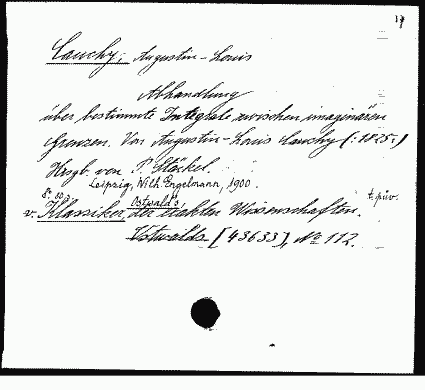 17
Cauchy, Augustin-Louis
Abhandlung
über bestimmte Integrale zwischen imaginären
Grenzen. Von Augustin-Louis Cauchy (: 1825.)
Hrgb. von P. Stäckel.
Leipzig, Wilh. Engelmann, 1900.
8°. 80
Ostwald's
v. Klassiker der exakten Wissenschaften.
Ostwalds [43633], No 112.